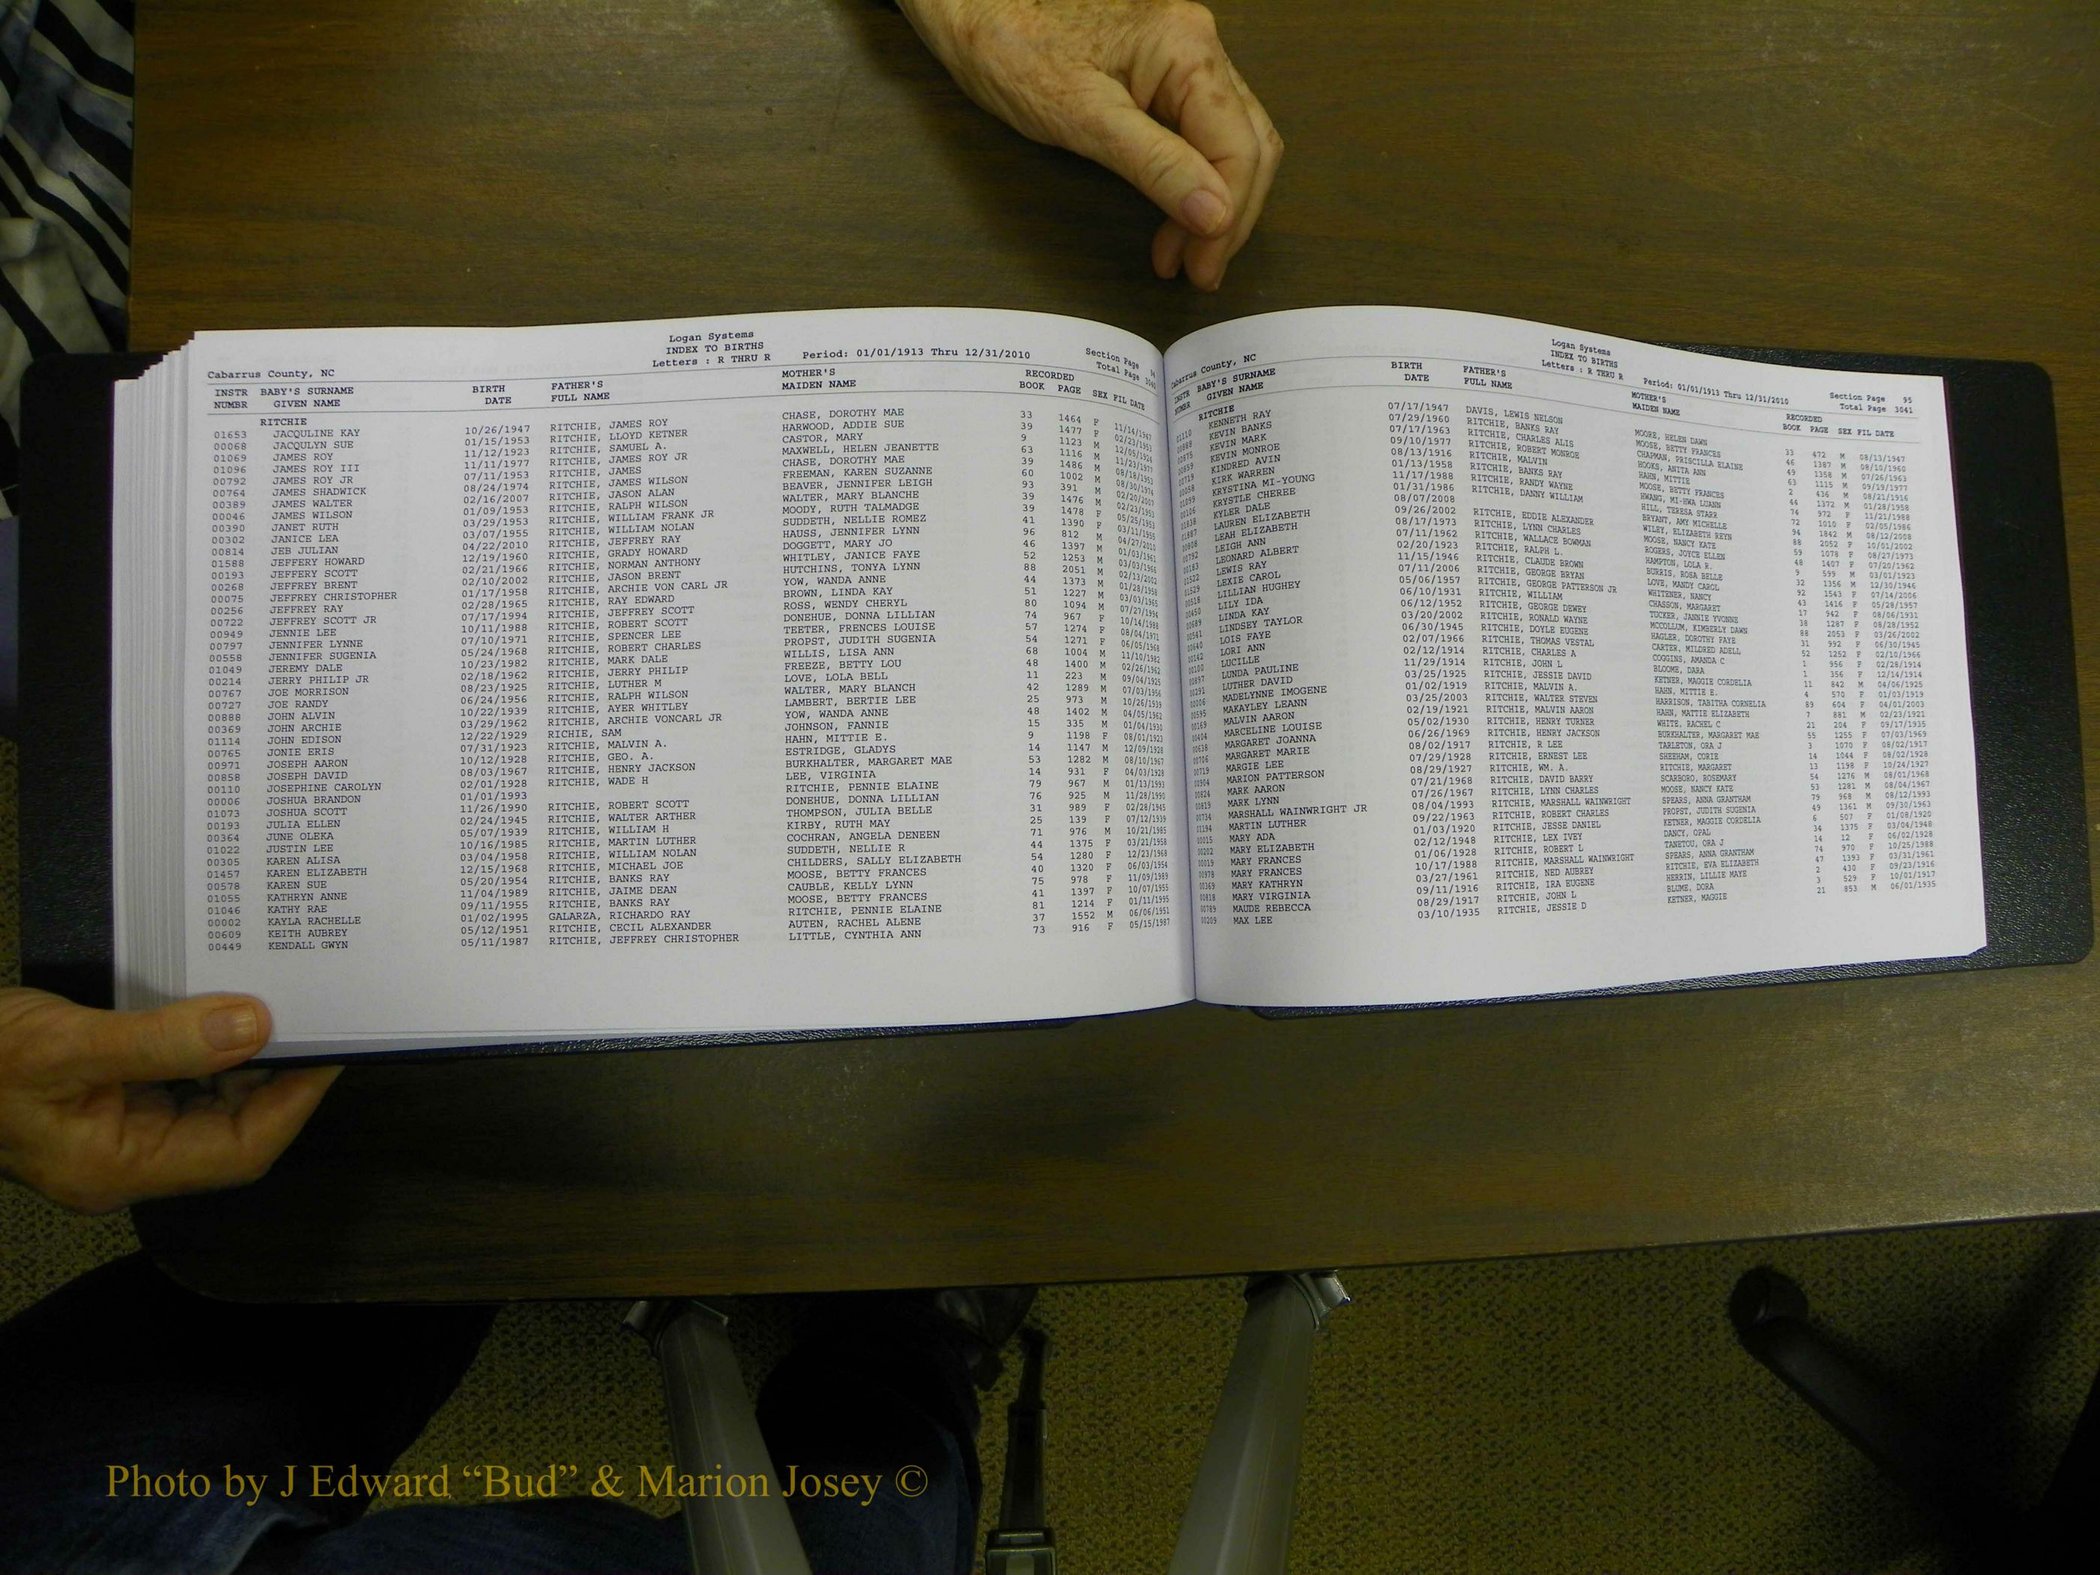 Logan Systems
INDEX TO BIRTHS
Letters : R THRU R Period: 01/01/1913 Thru 12/31/2010
Section Page 94
Total Page 3040
Cabarrus County, NC
INSTR BABY'S SURNAME BIRTH FATHER'S MOTHER'S RECORDED
NUMBR GIVEN NAME DATE FULL NAME MAIDEN NAME BOOK PAGE SEX FIL DATE
RITCHIE
01653 JACQULINE KAY 10/26/1947 RITCHIE, JAMES ROY CHASE, DOROTHY MAE 33 1464 F 11/14/1947
00068 JACQULYN SUE 01/15/1953 RITCHIE, LLOYD KETNER HARWOOD, ADDIE SUE 39 1477 F 02/23/1953
01069 JAMES ROY 11/12/1923 RITCHIE, SAMUEL A. CASTOR, MARY 9 1123 M 12/05/1923
01096 JAMES ROY III 11/11/1977 RITCHIE, JAMES ROY JR MAXWELL, HELEN JEANETTE 63 1116 M 11/23/1977
00792 JAMES ROY JR 07/11/1953 RITCHIE, JAMES CHASE, DOROTHY MAE 39 1486 M 08/18/1953
00764 JAMES SHADWICK 08/24/1974 RITCHIE, JAMES WILSON FREEMAN, KAREN SUZANNE 60 1002 M 08/30/1974
00389 JAMES WALTER 02/16/2007 RITCHIE, JASON ALAN BEAVER, JENNIFER LEIGH 93 391 M 02/20/2007
00046 JAMES WILSON 01/09/1953 RITCHIE, RALPH WILSON WALTER, MARY BLANCHE 39 1476 M 02/23/1953
00390 JANET RUTH 03/29/1953 RITCHIE, WILLIAM FRANK JR MOODY, RUTH TALMADGE 39 1478 F 05/25/1953
00302 JANICE LEA 03/07/1955 RITCHIE, WILLIAM NOLAN SUDDETH, NELLIE ROMEZ 41 1390 F 03/11/1955
00814 JEB JULIAN 04/22/2010 RITCHIE, JEFFREY RAY HAUSS, JENNIFER LYNN 96 812 M 04/27/2010
01588 JEFFERY HOWARD 12/19/1960 RITCHIE, GRADY HOWARD DOGGETT, MARY JO 46 1397 M 01/03/1961
00193 JEFFERY SCOTT 02/21/1966 RITCHIE, NORMAN ANTHONY WHITLEY, JANICE FAYE 52 1253 M 03/03/1966
00268 JEFFREY BRENT 02/10/2002 RITCHIE, JASON BRENT HUTCHINS, TONYA LYNN 88 2051 M 02/13/2002
00075 JEFFREY CHRISTOPHER 01/17/1958 RITCHIE, ARCHIE VON CARL JR YOW, WANDA ANNE 44 1373 M 01/28/1958
00256 JEFFREY RAY 02/28/1965 RITCHIE, RAY EDWARD BROWN, LINDA KAY 51 1227 M 03/03/1965
00722 JEFFREY SCOTT JR 07/17/1994 RITCHIE, JEFFREY SCOTT ROSS, WENDY CHERYL 80 1094 M 07/27/1994
00949 JENNIE LEE 10/11/1988 RITCHIE, ROBERT SCOTT DONEHUE, DONNA LILLIAN 74 967 F 10/14/1988
00797 JENNIFER LYNNE 07/10/1971 RITCHIE, SPENCER LEE TEETER, FRENCES LOUISE 57 1274 F 08/04/1971
00558 JENNIFER SUGENIA 05/24/1968 RITCHIE, ROBERT CHARLES PROPST, JUDITH SUGENIA 54 1271 F 06/05/1968
01049 JEREMY DALE 10/23/1982 RITCHIE, MARK DALE WILLIS, LISA ANN 68 1004 M 11/10/1982
00214 JERRY PHILIP JR 02/18/1962 RITCHIE, JERRY PHILIP FREEZE, BETTY LOU 48 1400 M 02/26/1962
00767 JOE MORRISON 08/23/1925 RITCHIE, LUTHER M LOVE, LOLA BELL 11 223 M 09/04/1925
00727 JOE RANDY 06/24/1956 RITCHIE, RALPH WILSON WALTER, MARY BLANCH 42 1289 M 07/03/1956
00888 JOHN ALVIN 10/22/1939 RITCHIE, AYER WHITLEY LAMBERT, BERTIE LEE 25 973 M 10/26/1939
00369 JOHN ARCHIE 03/29/1962 RITCHIE, ARCHIE VONCARL JR YOW, WANDA ANNE 48 1402 M 04/05/1962
01114 JOHN EDISON 12/22/1929 RICHIE, SAM JOHNSON, FANNIE 15 335 M 01/04/1930
00765 JONIE ERIS 07/31/1923 RITCHIE, MALVIN A. HAHN, MITTIE E. 9 1198 F 08/01/1923
00971 JOSEPH AARON 10/12/1928 RITCHIE, GEO. A. ESTRIDGE, GLADYS 14 1147 M 12/09/1928
00858 JOSEPH DAVID 08/03/1967 RITCHIE, HENRY JACKSON BURKHALTER, MARGARET MAE 53 1282 M 08/10/1967
00110 JOSEPHINE CAROLYN 02/01/1928 RITCHIE, WADE H LEE, VIRGINIA 14 931 F 04/03/1928
00006 JOSHUA BRANDON 01/01/1993 RITCHIE, PENNIE ELAINE 79 967 M 01/13/1993
01073 JOSHUA SCOTT 11/26/1990 RITCHIE, ROBERT SCOTT DONEHUE, DONNA LILLIAN 76 925 M 11/28/1990
00193 JULIA ELLEN 02/24/1945 RITCHIE, WALTER ARTHER THOMPSON, JULIA BELLE 31 989 F 02/28/1945
00364 JUNE OLEKA 05/07/1939 RITCHIE, WILLIAM H KIRBY, RUTH MAY 25 139 F 07/12/1939
01022 JUSTIN LEE 10/16/1985 RITCHIE, MARTIN LUTHER COCHRAN, ANGELA DENEEN 71 976 M 10/21/1985
00305 KAREN ALISA 03/04/1958 RITCHIE, WILLIAM NOLAN SUDDETH, NELLIE R 44 1375 F 03/21/1958
01457 KAREN ELIZABETH 12/15/1968 RITCHIE, MICHAEL JOE CHILDERS, SALLY ELIZABETH 54 1280 F 12/23/1968
00578 KAREN SUE 05/20/1954 RITCHIE, BANKS RAY MOOSE, BETTY FRANCES 40 1320 F 06/03/1954
01055 KATHRYN ANNE 11/04/1989 RITCHIE, JAIME DEAN CAUBLE, KELLY LYNN 75 978 F 11/09/1989
01046 KATHY RAE 09/11/1955 RITCHIE, BANKS RAY MOOSE, BETTY FRANCES 41 1397 F 10/07/1955
00002 KAYLA RACHELLE 01/02/1995 GALARZA, RICHARDO RAY RITCHIE, PENNIE ELAINE 81 1214 F 01/11/1995
00609 KEITH AUBREY 05/12/1951 RITCHIE, CECIL ALEXANDER AUTEN, RACHEL ALENE 37 1552 M 06/06/1951
00449 KENDALL GWYN 05/11/1987 RITCHIE, JEFFREY CHRISTOPHER LITTLE, CYNTHIA ANN 73 916 F 05/15/1987
Logan Systems
INDEX TO BIRTHS
Letters : R THRU R Period: 01/01/1913 Thru 12/31/2010
Section Page 95
Total Page 3041
Cabarrus County, NC
INSTR BABY'S SURNAME BIRTH FATHER'S MOTHER'S RECORDED
NUMBR GIVEN NAME DATE FULL NAME MAIDEN NAME BOOK PAGE SEX FIL DATE
RITCHIE
01110 KENNETH RAY 07/17/1947 DAVIS, LEWIS NELSON MOORE, HELEN DAWN 33 472 M 08/13/1947
00888 KEVIN BANKS 07/29/1960 RITCHIE, BANKS RAY MOOSE, BETTY FRANCES 46 1387 M 08/10/1960
00875 KEVIN MARK 07/17/1963 RITCHIE, CHARLES ALIS CHAPMAN, PRISCILLA ELAINE 49 1358 M 07/26/1963
00859 KEVIN MONROE 09/10/1977 RITCHIE, ROBERT MONROE HOOKS, ANITA ANN 63 1115 M 09/19/1977
00719 KINDRED AVIN 08/13/1916 RITCHIE, MALVIN HAHN, MITTIE 2 436 M 08/21/1916
00058 KIRK WARREN 01/13/1958 RITCHIE, BANKS RAY MOOSE, BETTY FRANCES 44 1372 M 01/28/1958
01099 KRYSTINA MI-YOUNG 11/17/1988 RITCHIE, RANDY WAYNE HWANG, MI-HWA LUANN 74 972 F 11/21/1988
00106 KRYSTLE CHEREE 01/31/1986 RITCHIE, DANNY WILLIAM HILL, TERESA STARR 72 1010 F 02/05/1986
01838 KYLER DALE 08/07/2008 BRYANT, AMY MICHELLE 94 1842 M 08/12/2008
01887 LAUREN ELIZABETH 09/26/2002 RITCHIE, EDDIE ALEXANDER WILEY, ELIZABETH REYN 88 2052 F 10/01/2002
00808 LEAH ELIZABETH 08/17/1973 RITCHIE, LYNN CHARLES MOOSE, NANCY KATE 59 1078 F 08/27/1973
00792 LEIGH ANN 07/11/1962 RITCHIE, WALLACE BOWMAN ROGERS, JOYCE ELLEN 48 1407 F 07/20/1962
00183 LEONARD ALBERT 02/20/1923 RITCHIE, RALPH L. HAMPTON, LOLA R. 9 599 M 03/01/1923
01522 LEWIS RAY 11/15/1946 RITCHIE, CLAUDE BROWN BURRIS, ROSA BELLE 32 1356 M 12/30/1946
01529 LEXIE CAROL 07/11/2006 RITCHIE, GEORGE BRYAN LOVE, MANDY CAROL 92 1543 F 07/14/2006
00518 LILLIAN HUGHEY 05/06/1957 RITCHIE, GEORGE PATTERSON JR WHITENER, NANCY 43 1416 F 05/28/1957
00450 LILY IDA 06/10/1931 RITCHIE, WILLIAM CHASSON, MARGARET 17 942 F 08/06/1931
00689 LINDA KAY 06/12/1952 RITCHIE, GEORGE DEWEY TUCKER, JANNIE YVONNE 38 1287 F 08/28/1952
00541 LINDSEY TAYLOR 03/20/2002 RITCHIE, RONALD WAYNE MCCOLLUM, KIMBERLY DAWN 88 2053 F 03/26/2002
00640 LOIS FAYE 06/30/1945 RITCHIE, DOYLE EUGENE EAGLER, DOROTHY FAYE 31 992 F 06/30/1945
00142 LORI ANN 02/07/1966 RITCHIE, THOMAS VESTAL CARTER, MILDRED ADELL 52 1252 F 02/10/1966
00100 LUCILLE 02/12/1914 RITCHIE, CHARLES A COGGINS, AMANDA C 1 956 F 02/28/1914
00897 LUNDA PAULINE 11/29/1914 RITCHIE, JOHN L BLOOME, DARA 1 356 F 12/14/1914
00291 LUTHER DAVID 03/25/1925 RITCHIE, JESSIE DAVID KETNER, MAGGIE CORDELIA 11 842 M 04/06/1925
00006 MADELYNNE IMOGENE 01/02/1919 RITCHIE, MALVIN A. HAHN, MITTIE E. 4 570 F 01/03/1919
00595 MAKAYLEY LEANN 03/25/2003 RITCHIE, WALTER STEVEN HARRISON, TABITHA CORNELIA 89 604 F 04/01/2003
00169 MALVIN AARON 02/19/1921 RITCHIE, MALVIN AARON HAHN, MATTIE ELIZABETH 7 881 M 02/23/1921
00404 MARCELINE LOUISE 05/02/1930 RITCHIE, HENRY TURNER WHITE, RACHEL C 21 204 F 09/17/1935
00638 MARGARET JOANNA 06/26/1969 RITCHIE, HENRY JACKSON BURKHALTER, MARGARET MAE 55 1255 F 07/03/1969
00706 MARGARET MARIE 08/02/1917 RITCHIE, R LEE TARLETON, ORA J 3 1070 F 08/02/1917
00719 MARGIE LEE 07/29/1928 RITCHIE, ERNEST LEE SHEEHAM, CORIE 14 1044 F 08/02/1928
00904 MARION PATTERSON 08/29/1927 RITCHIE, WM. A. RITCHIE, MARGARET 13 1198 F 10/24/1927
00824 MARK AARON 07/21/1968 RITCHIE, DAVID BARRY SCARBORO, ROSEMARY 54 1276 M 08/01/1968
00819 MARK LYNN 07/26/1967 RITCHIE, LYNN CHARLES MOOSE, NANCY KATE 53 1281 M 08/04/1967
00734 MARSHALL WAINWRIGHT JR 08/04/1993 RITCHIE, MARSHALL WAINWRIGHT SPEARS, ANNA GRANTHAM 79 968 M 08/12/1993
01194 MARTIN LUTHER 09/22/1963 RITCHIE, ROBERT CHARLES PROPST, JUDITH SUGENIA 49 1361 M 09/30/1963
00015 MARY ADA 01/03/1920 RITCHIE, JESSE DANIEL KETNER, MAGGIE CORDELIA 6 507 F 01/08/1920
00202 MARY ELIZABETH 02/12/1948 RITCHIE, LEX IVEY DANCY, OPAL 34 1375 F 03/04/1948
00019 MARY FRANCES 01/06/1928 RITCHIE, ROBERT L TANETOU, ORA J 14 12 F 06/02/1928
00978 MARY FRANCES 10/17/1988 RITCHIE, MARSHALL WAINWRIGHT SPEARS, ANNA GRANTHAM 74 970 F 10/25/1988
00369 MARY KATHRYN 03/27/1961 RITCHIE, NED AUBREY RITCHIE, EVA ELIZABETH 47 1393 F 03/31/1961
00818 MARY VIRGINIA 09/11/1916 RITCHIE, IRA EUGENE HERRIN, LILLIE MAYE 2 430 F 09/23/1916
00789 MAUDE REBECCA 08/29/1917 RITCHIE, JOHN L BLUME, DORA 3 529 F 10/01/1917
00209 MAX LEE 03/10/1935 RITCHIE, JESSIE D KETNER, MAGGIE 21 853 M 06/01/1935
Photo by J Edward “Bud” & Marion Josey ©